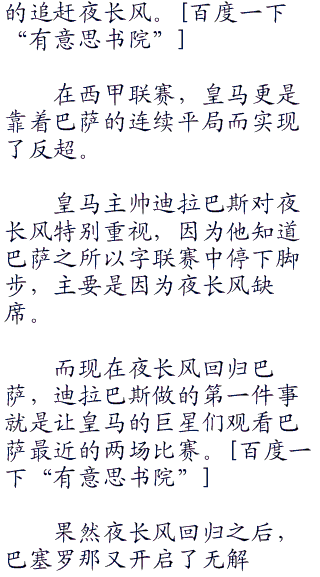 的追赶夜长风。[百度一下
“有意思书院”]
在西甲联赛，皇马更是
靠着巴萨的连续平局而实现
了反超。
皇马主帅迪拉巴斯对夜
长风特别重视，因为他知道
巴萨之所以字联赛中停下脚
步，主要是因为夜长风缺
席。
而现在夜长风回归巴
萨，迪拉巴斯做的第一件事
就是让皇马的巨星们观看巴
萨最近的两场比赛。[百度一
下“有意思书院”]
果然夜长风回归之后，
巴塞罗那又开启了无解